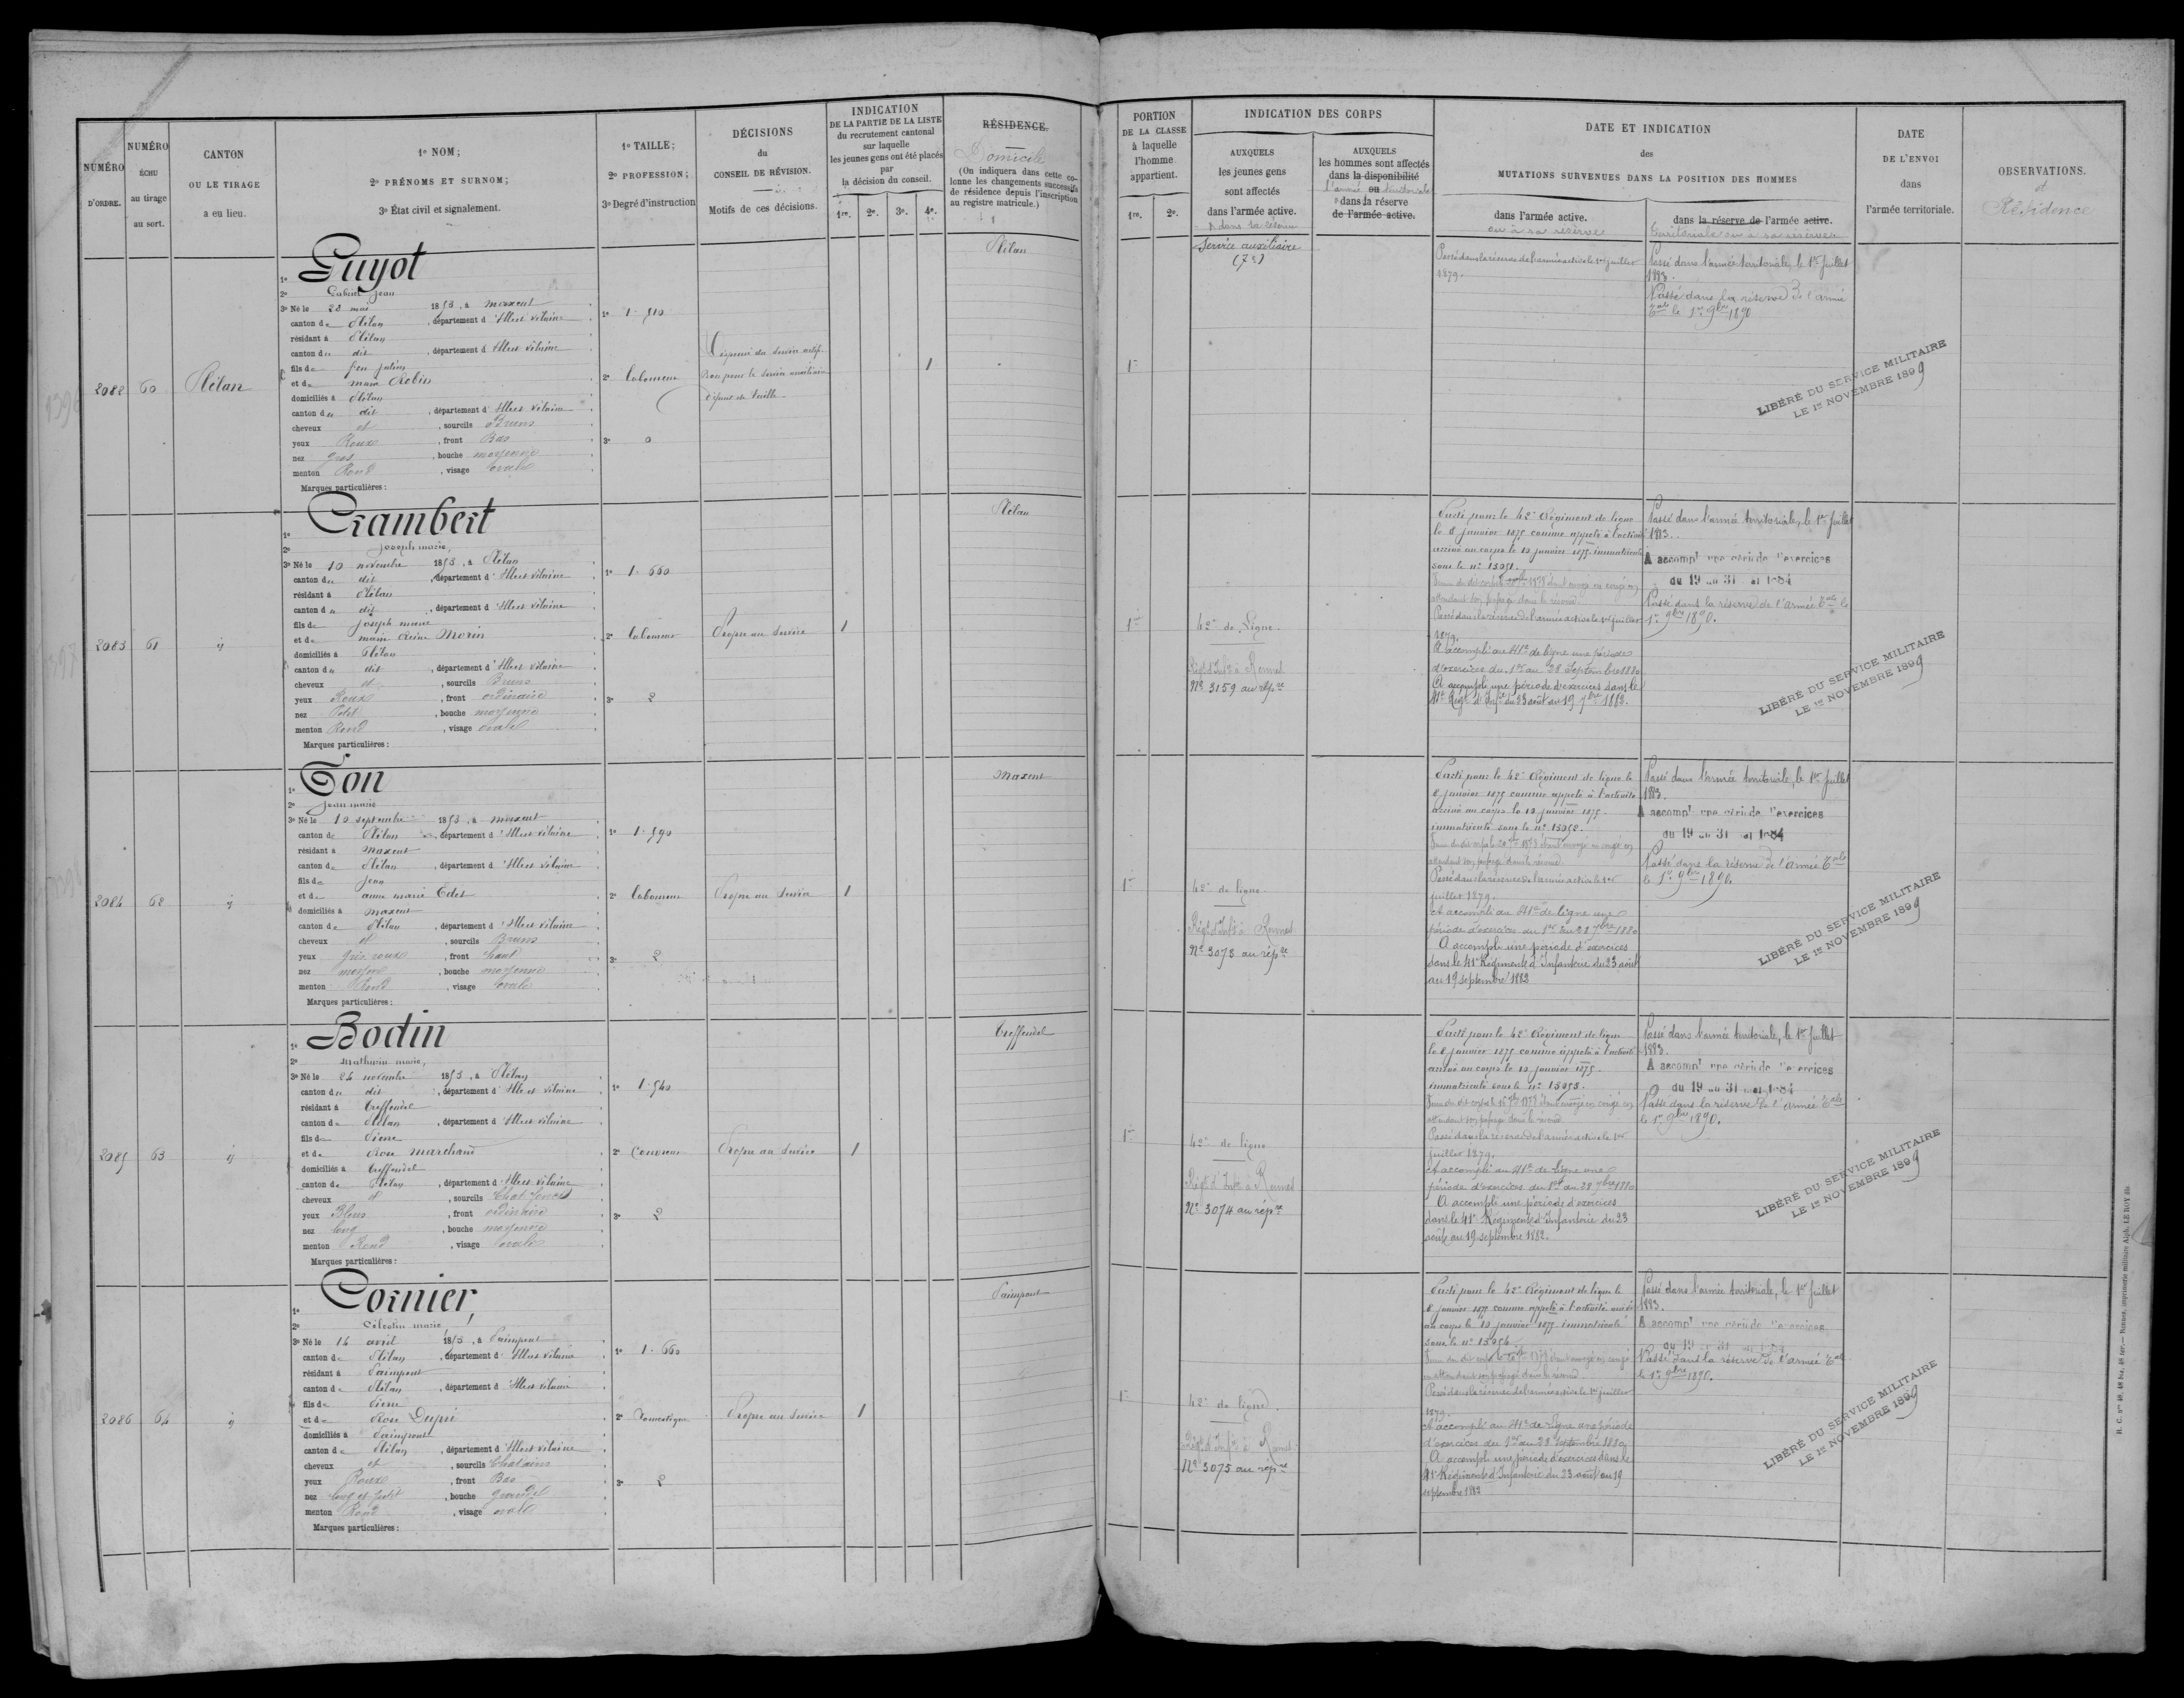 NUMÉRO
D'ORDRE.
NUMÉRO
ÉCHU
au tirage
au sort.
CANTON
OU LE TIRAGE
a eu lieu.
1º NOM;
2º PRÉNOMS ET SURNOM;
3º État civil et signalement.
1º TAILLE;
2º PROFESSION;
3º Degré d'instruction
DÉCISIONS
du
CONSEIL DE RÉVISION.
Motifs de ces décisions.
INDICATION
DE LA PARTIE DE LA LISTE
du recrutement cantonal
sur laquelle
les jeunes gens ont été placés
par
la décision du conseil.
1re. 2e. 3e. 4e.
RÉSIDENCE.
Domicile
(On indiquera dans cette co-
lonne les changements successifs
de résidence depuis l'inscription
au registre matricule.)
PORTION
DE LA CLASSE
à laquelle
l'homme
appartient.
1re. 2e.
INDICATION DES CORPS
AUXQUELS
les jeunes gens
sont affectés
dans l'armée active.
& dans la réserve
AUXQUELS
les hommes sont affectés
dans la disponibilité
l'armée ou territoriale
& dans la réserve
de l'armée active.
DATE ET INDICATION
des
MUTATIONS SURVENUES DANS LA POSITION DES HOMMES
dans l'armée active.
ou à sa réserve
dans la réserve de l'armée active.
territoriale ou à sa réserve
DATE
DE L'ENVOI
dans
l'armée territoriale.
OBSERVATIONS.
et
Résidence
2082 60 Plélan
1º Guyot
2º Gabriel Jean
3º Né le 28 mai 1853, à Maxent
canton de Plélan, département d'Ille et Vilaine
résidant à Plélan
canton du dit, département d'Ille et Vilaine
fils de feu Julien
et de Marie Robin
domiciliés à Plélan
canton du dit, département d'Ille et Vilaine
cheveux et, sourcils Bruns
yeux Roux, front Bas
nez gros, bouche moyenne
menton Rond, visage ovale
Marques particulières :
1º 1.510
2º laboureur
3º 0
Dispensé du service actif.
Bon pour le service auxiliaire
défaut de taille
1
Plélan
1re
Service auxiliaire
(7e)
Passé dans la réserve de l'armée active le 1er juillet
1879.
Passé dans l'armée territoriale, le 1er Juillet
1883.
Passé dans la réserve de l'armée
Tale le 1er 9bre 1890
LIBÉRÉ DU SERVICE MILITAIRE
LE 1er NOVEMBRE 1899
2083 61 ij
1º Crambert
2º Joseph marie,
3º Né le 10 novembre 1853, à Plélan
canton du dit, département d'Ille et Vilaine
résidant à Plélan
canton du dit, département d'Ille et Vilaine
fils de Joseph marie
et de marie Reine Morin
domiciliés à Plélan
canton du dit, département d'Ille et Vilaine
cheveux et, sourcils Bruns
yeux Roux, front ordinaire
nez Petit, bouche moyenne
menton Rond, visage ovale
Marques particulières :
1º 1.660
2º laboureur
3º 2
Propre au service
1
Plélan
1re
42e de Ligne
Régt d'Infie à Rennes
Nº 3159 au rép.re
Parti pour le 42e Régiment de ligne
le 8 janvier 1875 comme appelé à l'activité
arrivé au corps le 10 janvier 1875. immatriculé
sous le nº 15051.
attendant son passage dans la réserve
Passé dans la réserve de l'armée active le 1er juillet
1879.
A accompli au 41e de ligne une période
d'exercices du 1er au 28 Septembre 1880
A accompli une période d'exercices dans le
41e Régt d'Infie du 23 août au 19 7bre 1882.
Passé dans l'armée territoriale, le 1er Juillet
1883.
A accompl une période d'exercices
du 19 au 31 mai 1884
Passé dans la réserve de l'armée Tale le
1er 9bre 1890.
LIBÉRÉ DU SERVICE MILITAIRE
LE 1er NOVEMBRE 1899
2084 62 ij
1º Ton
2º Jean marie
3º Né le 10 septembre 1853, à Maxent
canton de Plélan, département d'Ille et Vilaine
résidant à Maxent
canton de Plélan, département d'Ille et Vilaine
fils de Jean
et de anne marie Edet
domiciliés à Maxent
canton de Plélan, département d'Ille et Vilaine
cheveux et, sourcils Bruns
yeux Gris roux, front haut
nez moyen, bouche moyenne
menton Rond, visage ovale
Marques particulières :
1º 1.590
2º laboureur
3º 2
Propre au service
1
Maxent
1re
42e de ligne
Régt d'Infie à Rennes
Nº 3073 au rép.re
Parti pour le 42e Régiment de ligne le
8 janvier 1875 comme appelé à l'activité
arrivé au corps le 10 janvier 1875.
immatriculé sous le nº 15052.
attendant son passage dans la réserve
Passé dans la réserve de l'armée active le 1er
juillet 1879.
A accompli au 41e de ligne une
période d'exercices du 1er au 28 7bre 1880
A accompli une période d'exercices
dans le 41e Régiment d'Infanterie du 23 août
au 19 septembre 1882
Passé dans l'armée territoriale, le 1er Juillet
1883.
A accompl une période d'exercices
du 19 au 31 mai 1884
Passé dans la réserve de l'armée Tale
le 1er 9bre 1890.
LIBÉRÉ DU SERVICE MILITAIRE
LE 1er NOVEMBRE 1899
2085 63 ij
1º Bodin
2º Mathurin marie,
3º Né le 24 novembre 1853, à Plélan
canton du dit, département d'Ille et Vilaine
résidant à Treffendel
canton de Plélan, département d'Ille et Vilaine
fils de Pierre
et de Rose Marchand
domiciliés à Treffendel
canton de Plélan, département d'Ille et Vilaine
cheveux et, sourcils Chat. foncés
yeux Bleus, front ordinaire
nez long, bouche moyenne
menton Rond, visage ovale
Marques particulières :
1º 1.540
2º Couvreur
3º 2
Propre au service
1
Treffendel
1re
42e de ligne
Régt d'Infie à Rennes
Nº 3074 au rép.re
Parti pour le 42e Régiment de ligne
le 8 janvier 1875 comme appelé à l'activité
arrivé au corps le 10 janvier 1875.
immatriculé sous le nº 15053.
attendant son passage dans la réserve
Passé dans la réserve de l'armée active le 1er
juillet 1879.
A accompli au 41e de Ligne une
période d'exercices du 1er au 28 7bre 1880
A accompli une période d'exercices
dans le 41e Régiment d'Infanterie du 23
août au 19 septembre 1882.
Passé dans l'armée territoriale, le 1er Juillet
1883.
A accompl une période d'exercices
du 19 au 31 mai 1884
Passé dans la réserve de l'armée Tale
le 1er 9bre 1890.
LIBÉRÉ DU SERVICE MILITAIRE
LE 1er NOVEMBRE 1899
2086 64 ij
1º Cornier,
2º Célestin marie,
3º Né le 14 avril 1853, à Paimpont
canton de Plélan, département d'Ille et Vilaine
résidant à Paimpont
canton de Plélan, département d'Ille et Vilaine
fils de Pierre
et de Rose Dupré
domiciliés à Paimpont
canton de Plélan, département d'Ille et Vilaine
cheveux et, sourcils Chatains
yeux Roux, front Bas
nez long et petit, bouche grande
menton Rond, visage ovale
Marques particulières :
1º 1.660
2º Domestique
3º 2
Propre au service
1
Paimpont
1re
42e de ligne
Régt d'Infie à Rennes
Nº 3075 au rép.re
Parti pour le 42e Régiment de ligne le
8 janvier 1875 comme appelé à l'activité arrivé
au corps le 10 janvier 1875 immatriculé
sous le nº 15054.
en attendant son passage dans la réserve
Passé dans la réserve de l'armée active le 1er juillet
1879.
A accompli au 41e de Ligne une période
d'exercices du 1er au 28 Septembre 1880
A accompli une période d'exercices dans le
41e Régiment d'Infanterie du 23 août au 19
septembre 1882
Passé dans l'armée territoriale, le 1er Juillet
1883.
A accompl une période d'exercices
du 19 au 31 mai 1884
Passé dans la réserve de l'armée Tale
le 1er 9bre 1890.
LIBÉRÉ DU SERVICE MILITAIRE
LE 1er NOVEMBRE 1899
R. C. nos 48, 48 bis, 48 ter. — Rennes, imprimerie militaire Alph. LE ROY fils